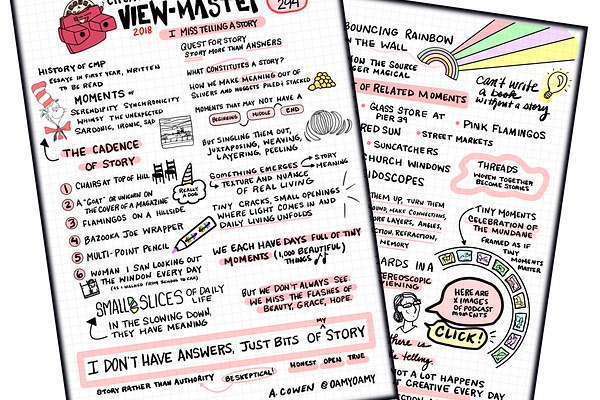 VIEW-MASTER
2018
244
I MISS TELLING A STORY
QUEST FOR STORY
STORY MORE THAN ANSWERS
HISTORY OF CMP
ESSAYS IN FIRST YEAR, WRITTEN
TO BE READ
WHAT CONSTITUTES A STORY?
HOW WE MAKE MEANING OUT OF
SLIVERS AND NUGGETS PILED & STACKED
MOMENTS OF
SERENDIPITY SYNCHRONICITY
WHIMSY THE UNEXPECTED
SARDONIC, IRONIC, SAD
MOMENTS THAT MAY NOT HAVE A
BEGINNING MIDDLE END
BUT SINGLING THEM OUT,
JUXTAPOSING, WEAVING,
LAYERING, PEELING
THE CADENCE
OF STORY
1 CHAIRS AT TOP OF HILL
2 A "GOAT" OR UNICORN ON
THE COVER OF A MAGAZINE
3 FLAMINGOS ON A HILLSIDE
4 BAZOOKA JOE WRAPPER
5 MULTI-POINT PENCIL
6 WOMAN I SAW LOOKING OUT
THE WINDOW EVERY DAY
(AS I WALKED FROM SCHOOL TO CAR)
REALLY
A DOG
SOMETHING EMERGES → STORY
MEANING
TEXTURE AND NUANCE
OF REAL LIVING
TINY CRACKS, SMALL OPENINGS
WHERE LIGHT COMES IN AND
DAILY LIVING UNFOLDS
WE EACH HAVE DAYS FULL OF TINY
MOMENTS (1,000 BEAUTIFUL)
THINGS
SMALL SLICES OF DAILY
LIFE
IN THE SLOWING DOWN,
THEY HAVE MEANING
BUT WE DON'T ALWAYS SEE.
WE MISS THE FLASHES OF
BEAUTY, GRACE, HOPE.
I DON'T HAVE ANSWERS, JUST BITS OF MY STORY
STORY RATHER THAN AUTHORITY
BE SKEPTICAL!
HONEST OPEN TRUE
A. COWEN @OAMYOAMY
BOUNCING RAINBOW
ON THE WALL
ON THE SOURCE
GER MAGICAL
CAN'T WRITE
A BOOK
WITHOUT A STORY
OF RELATED MOMENTS
• GLASS STORE AT
PIER 39
• PINK FLAMINGOS
RED SUN
• STREET MARKETS
• SUNCATCHERS
CHURCH WINDOWS
IDOSCOPES
THREADS
WOVEN TOGETHER
BECOME STORIES
THEM UP, TURN THEM
OUND, MAKE CONNECTIONS,
ORE LAYERS, ANGLES,
CTION, REFRACTION,
MEMORY
TINY MOMENTS
CELEBRATION OF
THE MUNDANE
FRAMED AS IF
TINY
MOMENTS
MATTER
ARDS IN A
STEREOSCOPIC
VIEWING
HERE ARE
X IMAGES
OF PODCAST
MOMENTS
CLICK!
THERE IS
TELLING
A LOT HAPPENS
CREATIVE EVERY DAY